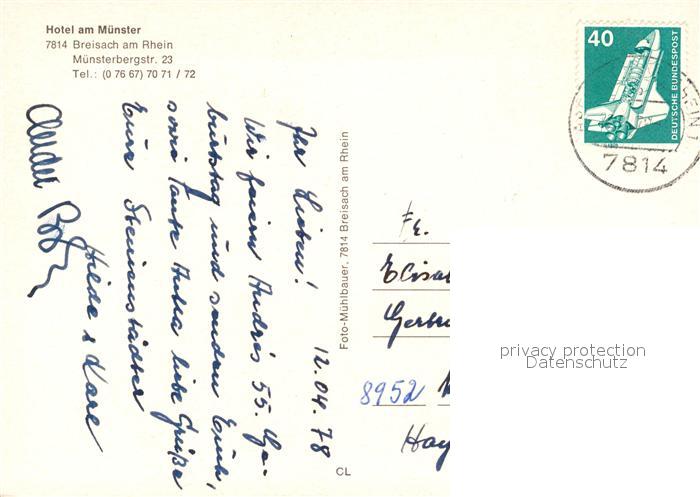 Hotel am Münster
7814 Breisach am Rhein
Münsterbergstr. 23
Tel.: (0 76 67) 70 71 / 72
40
DEUTSCHE BUNDESPOST
7814
12.04.78
Ihr Lieben!
Wir feiern Andrés 55. Ge-
burtstag und senden Euch,
sowie Tante Anna liebe Grüße
Eure Steinenstädter
Hilde & Karl
Foto-Mühlbauer, 7814 Breisach am Rhein
CL
Fr.
Elisa
Gertr
8952
Hay
privacy protection
Datenschutz